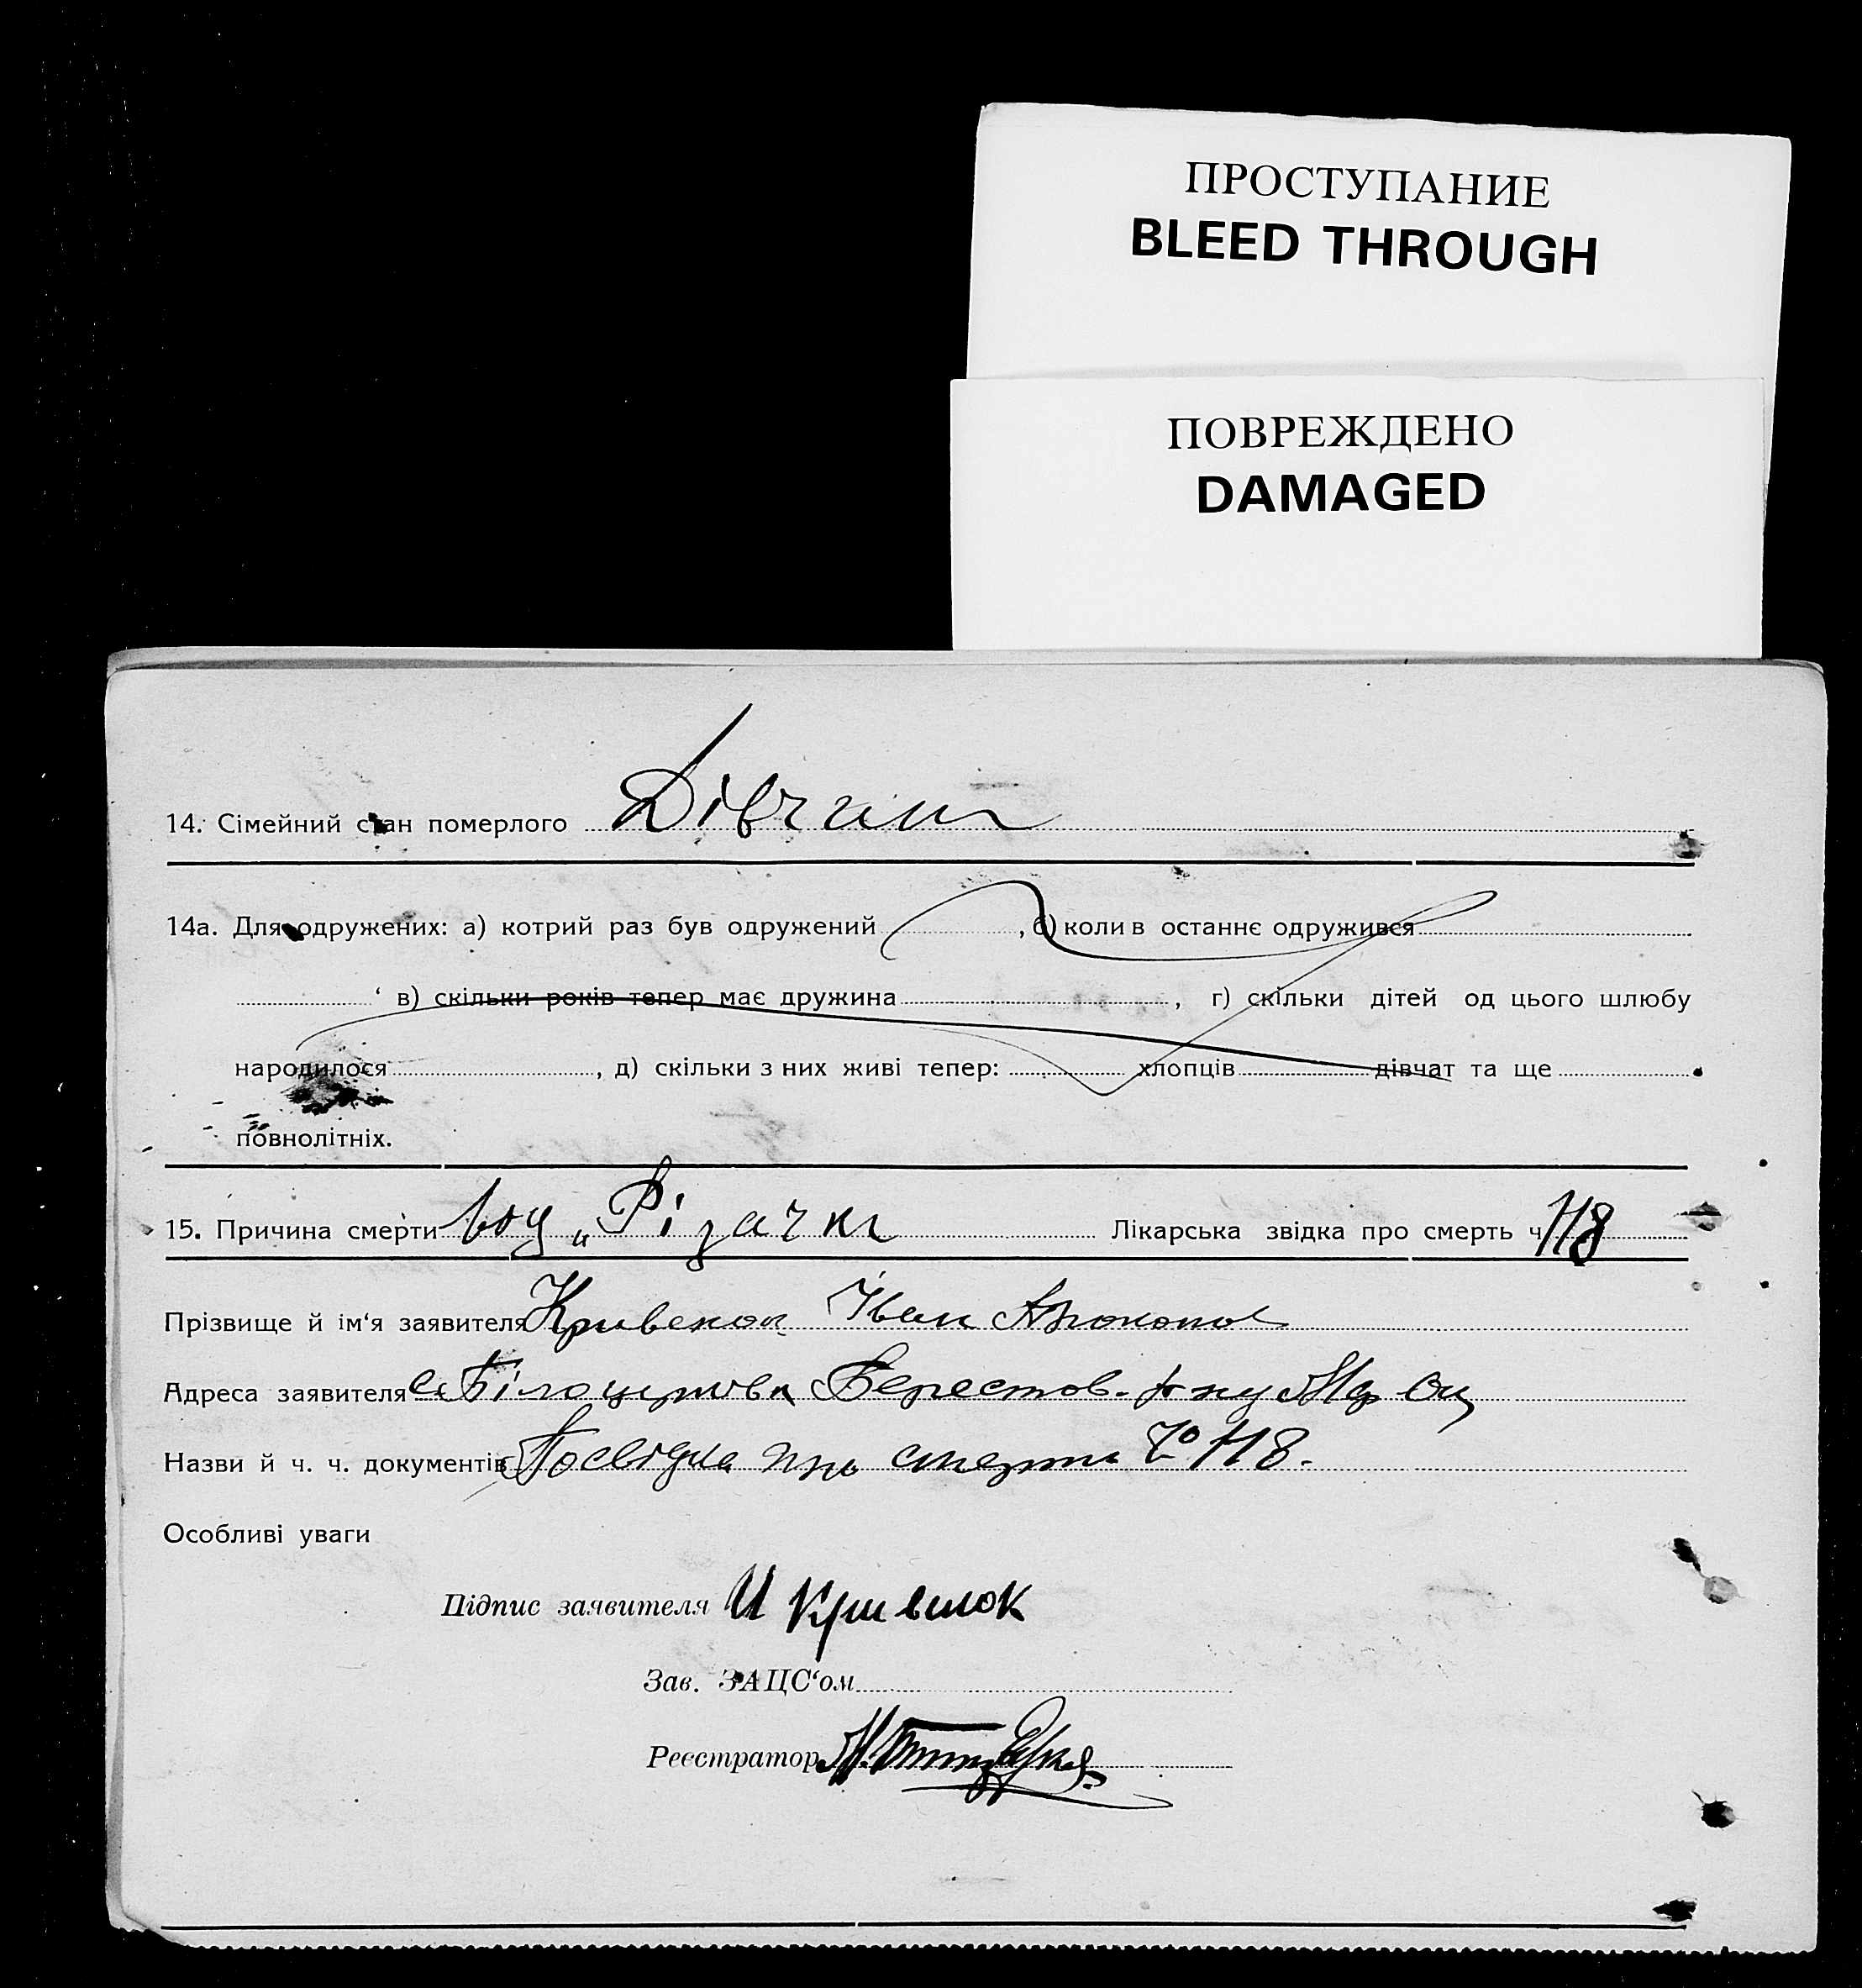 ПРОСТУПАНИЕ
BLEED THROUGH
ПОВРЕЖДЕНО
DAMAGED
14. Сімейний стан померлого Дівчина
14а. Для одружених: а) котрий раз був одружений , б) коли в останнє одружився
‘ в) скільки років тепер має дружина , г) скільки дітей од цього шлюбу
народилося , д) скільки з них живі тепер: хлопців дівчат та ще
повнолітніх.
15. Причина смерти Вод „Різачки Лікарська звідка про смерть ч. 118
Прізвище й ім‘я заявителя Кривенок Іван
Адреса заявителя с. Білоцерковка Берестов.
Назви й ч. ч. документів Посвідка про смерть № 118.
Особливі уваги
Підпис заявителя И Кривенок
Зав. ЗАЦС‘ом
Реєстратор